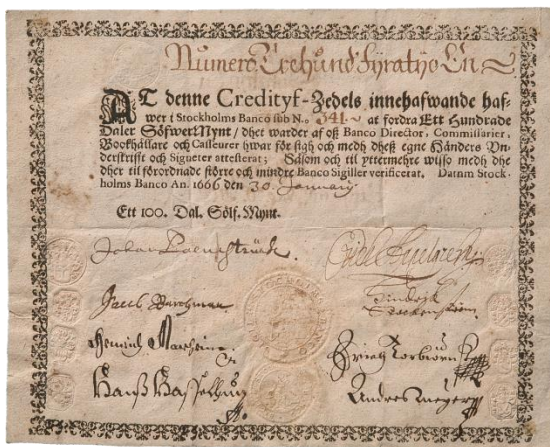 Numero Trehund Fyratyo En
AT denne Credityf-Zedels innehafwande haf-
wer i Stockholms Banco sub N.o 341. at fordra Ett Hundrade
Daler SölfwerMynt / dhet warder af oß Banco Director, Commissarier,
Bookhållare och Casseurer hwar för sigh och medh dheß egne Händers Un-
derskrifft och Signeter attesterat; Såsom och til yttermehre wisso medh dhe
dher til förordnade större och mindre Banco Sigiller verificerat. Datum Stock-
holms Banco An. 1666 den 30. January
Ett 100. Dal. Sölf. Mynt.
Johan Palmstruch.
Jacob
Hinrich
Hanß
Anders Meyer